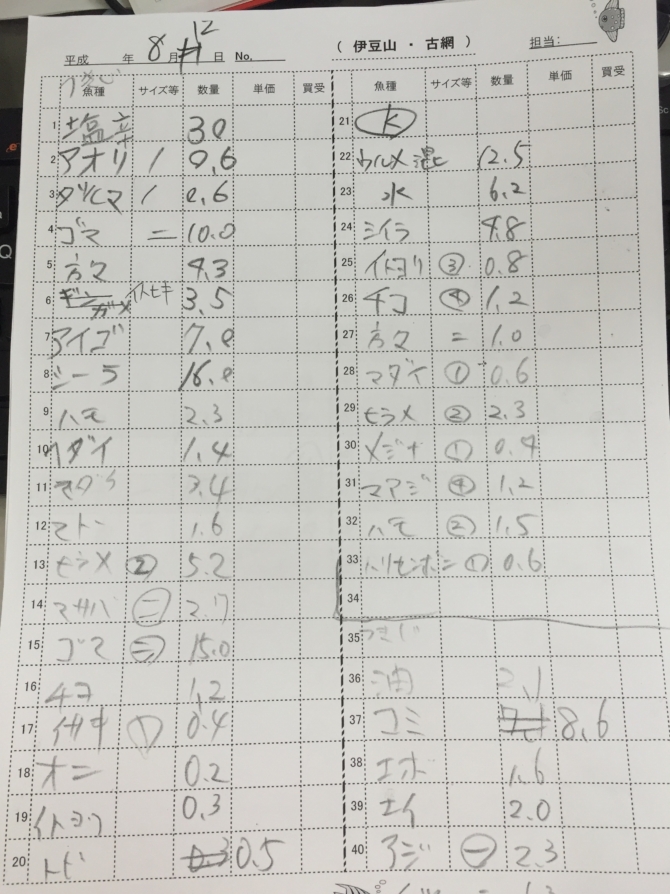 平成 年 8月12日 No. ( 伊豆山 ・ 古網 ) 担当:
魚種 サイズ等 数量 単価 買受
1 塩辛 30
2 アオリ 1 0.6
3 ダルマ 1 0.6
4 ゴマ 二 10.0
5 方々 4.3
6 イトヒキ 3.5
7 アイゴ 7.0
8 シーラ 16.0
9 ハモ 2.3
10 ヘダイ 1.4
11 マダイ 3.4
12 マトー 1.6
13 ヒラメ ② 5.2
14 マサバ ㊁ 2.7
15 ゴマ ㊂ 15.0
16 チコ 1.2
17 イサキ ① 0.4
18 オニ 0.2
19 イトヨリ 0.3
20 トビ 0.5
魚種 サイズ等 数量 単価 買受
21
22 ウルメ混ヒ 12.5
23 水 6.2
24 シイラ 4.8
25 イトヨリ ③ 0.8
26 チコ ④ 1.2
27 方々 二 1.0
28 マダイ ① 0.6
29 ヒラメ ② 2.3
30 メジナ ① 0.4
31 マアジ ④ 1.2
32 ハモ ② 1.5
33 ハリセンボン ① 0.6
34
35 つきじ
36 油 2.1
37 ゴミ 8.6
38 エボ 1.6
39 エイ 2.0
40 アジ ㊀ 2.3